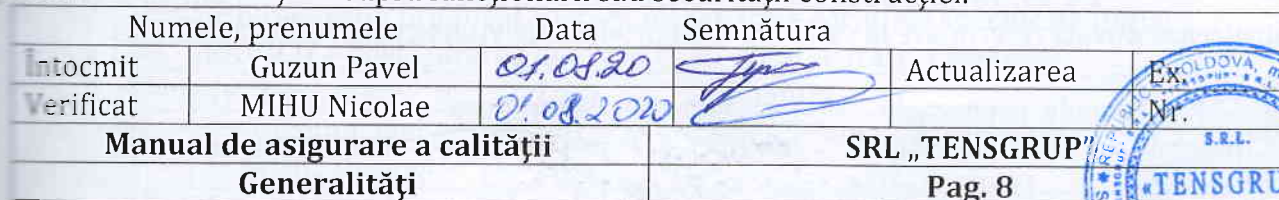 Numele, prenumele Data Semnătura
Întocmit Guzun Pavel 01.08.20 Actualizarea Ex.
Verificat MIHU Nicolae 01.08.2020 Nr.
Manual de asigurare a calității SRL „TENSGRUP”
Generalități Pag. 8
S.R.L.
«TENSGRU